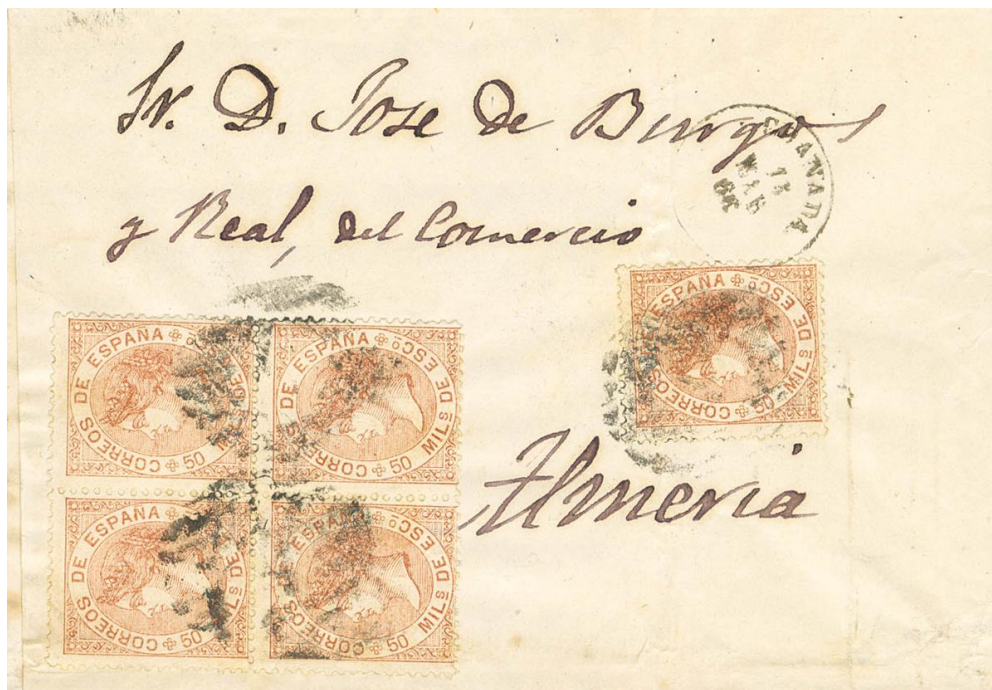 Sr. D. Jose de Burgos
y Real, del Comercio
Almeria
GRANADA
CORREOS DE ESPAÑA
50 MILS DE ESCO
CORREOS DE ESPAÑA
50 MILS DE ESCO
CORREOS DE ESPAÑA
50 MILS DE ESCO
CORREOS DE ESPAÑA
50
CORREOS DE ESPAÑA
50 MILS DE ESCO